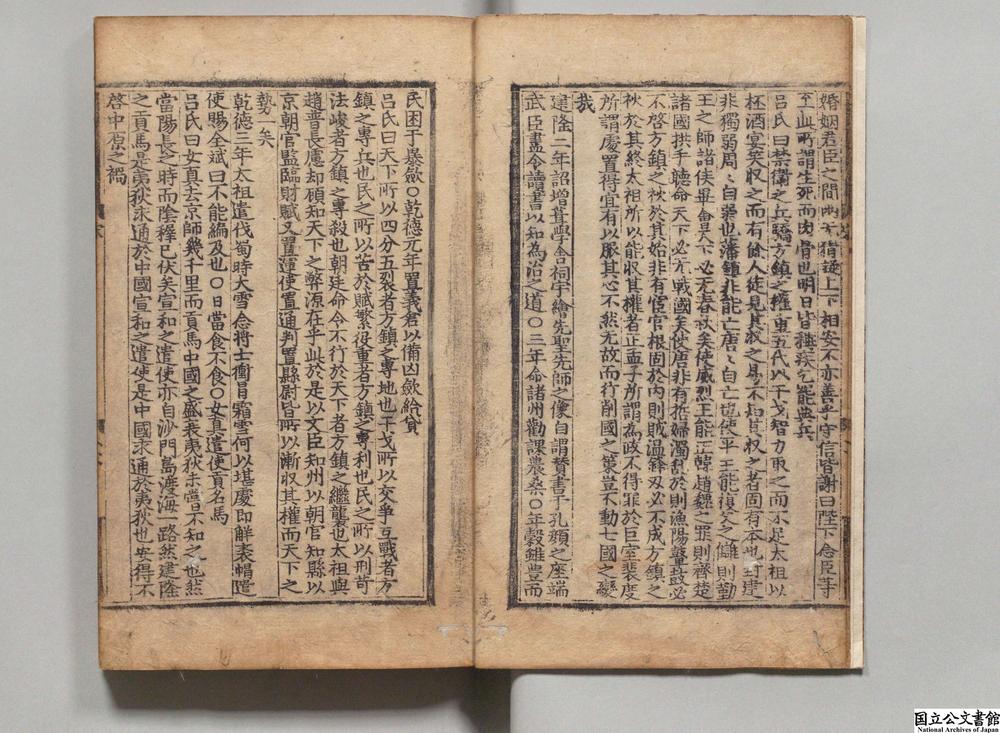 婚姻君臣之間兩無猜疑上下相安不亦善乎守信皆謝曰陛下念臣等
至此所謂生死而肉骨也明日皆稱疾乞罷典兵
呂氏曰禁衛之兵驕方鎮之權重五代以干戈智力取之而不足太祖以
杯酒宴笑收之而有餘人徒見其收之易不知其收之者固有本也封建
非獨弱周〻自弱也藩鎮非能亡唐〻自亡也使平王能復父之讎則勤
王之師諸侯畢會天下必無春秋矣使威烈王能正韓趙魏之罪則齊楚
諸國拱手聽命天下必無戰國矣使唐非有哲婦濁亂於則漁陽鼙鼓必
不啓方鎮之秋於其始非有宦官根固於內則賊溫鋒刃必不成方鎮之
秋於其終太祖所以能收其權者正孟子所謂為政不得罪於巨室裴度
所謂處置得宜有以服其心不然無故而行削國之策豈不動七國之變
哉
建隆二年詔增葺學舍祠宇繪先聖先師之像自謂贊書于孔顏之座端
武臣盡令讀書以知為治之道○三年命諸州勸課農桑○年穀雖豊而
民困于暴歛○乾德元年置義倉以備凶歛給貸
呂氏曰天下所以四分五裂者方鎮之專地也干戈所以交爭互戰者方
鎮之專兵也民之所以苦於賦繁役重者方鎮之專利也民之所以刑苛
法峻者方鎮之專殺也朝廷命令不行於天下者方鎮之繼襲也太祖與
趙普長慮却顧知天下之弊源在乎此於是以文臣知州以朝官知縣以
京朝官監臨財賦又置運使置通判置縣尉皆所以漸收其權而天下之
勢一矣
乾德三年太祖遣伐蜀時大雪念將士衝冒霜雪何以堪處即解裘帽遣
使賜全斌曰不能編及也○日當食不食○女真遣使貢名馬
呂氏曰女真去京師幾千里而貢馬中國之盛衰夷狄未嘗不知之也然
當陽長之時而陰稱已伏矣宣和之遣使亦自沙門島渡海一路然建隆
之貢馬是夷狄求通於中國宣和之遣使是中國求通於夷狄也安得不
啓中原之禍
国立公文書館
National Archives of Japan